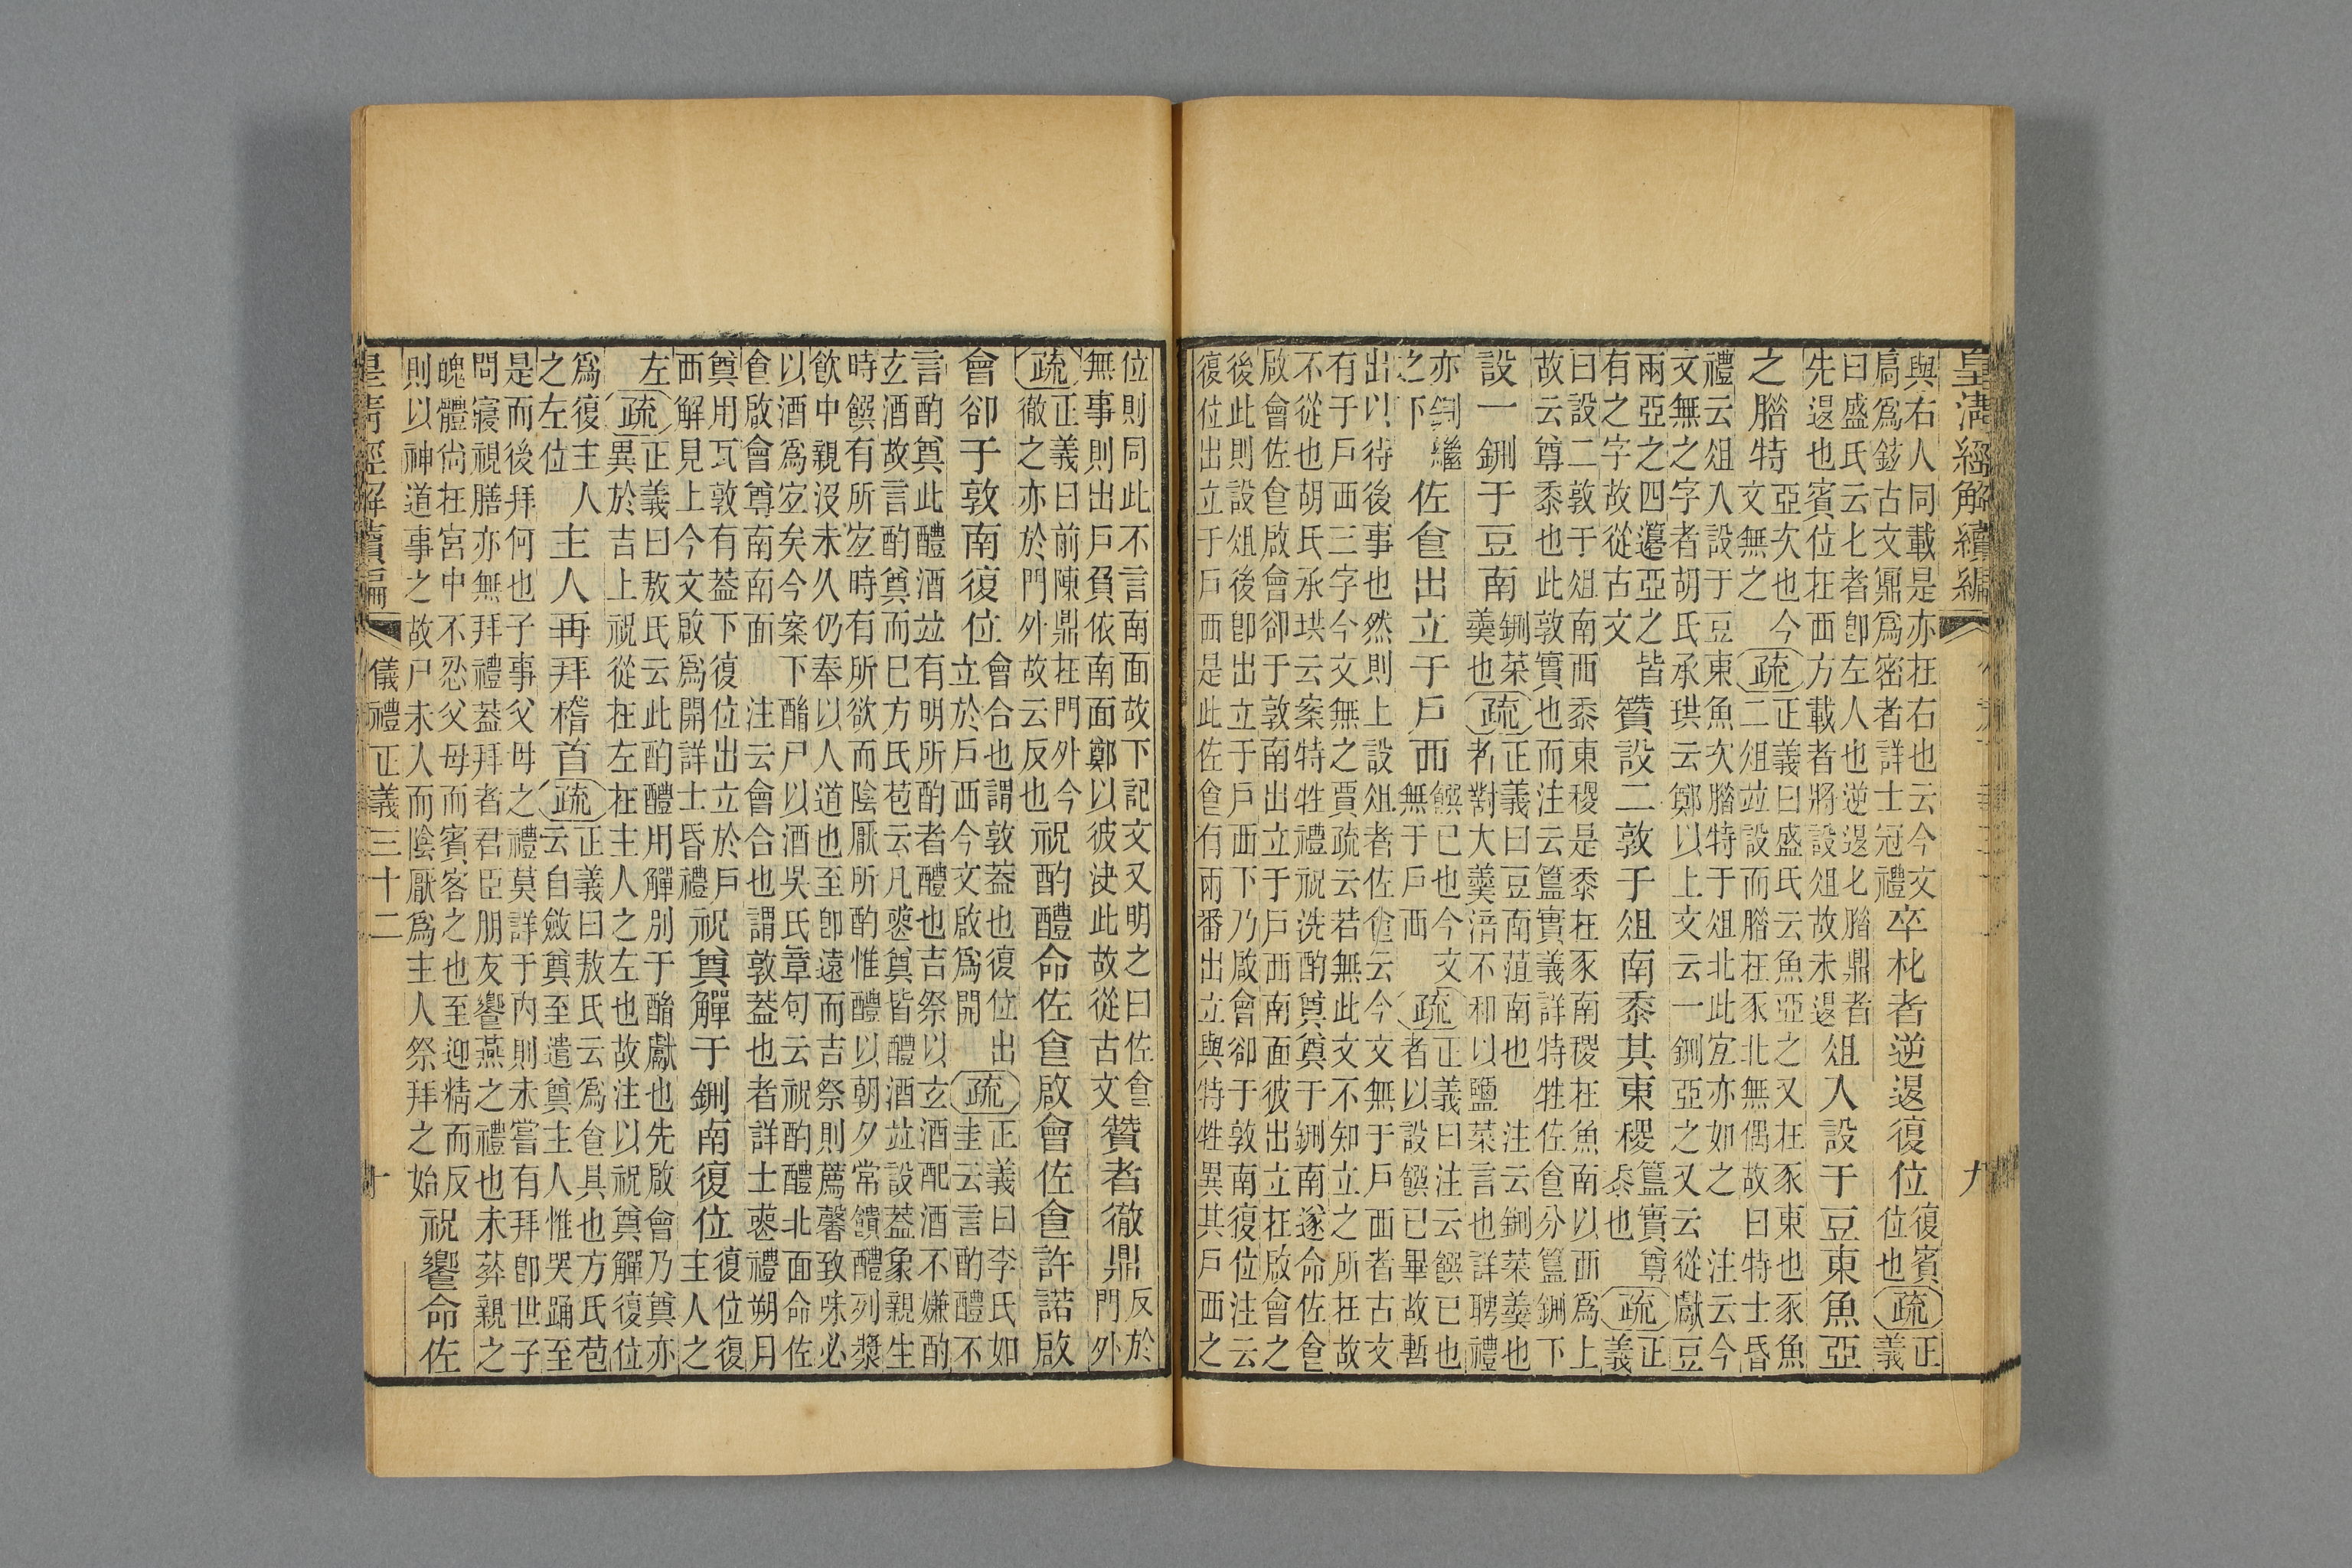 皇清經解續編
九
與右人同載是亦在右也云今文
扃爲鉉古文鼎爲密者詳士冠禮
卒朼者逆退復位
復賓
位也
疏
正
義
曰盛氏云匕者卽左人也逆退匕腊鼎者
先退也賓位在西方載者將設俎故未退
俎入設于豆東魚亞
之腊特
亞次也今
文無之
疏
正義曰盛氏云魚亞之又在豕東也豕魚
二俎竝設而腊在豕北無偶故曰特士昏
禮云俎入設于豆東魚次腊特于俎北此宜亦如之 注云今
文無之字者胡氏承珙云鄭以上文云一鉶亞之又云從獻豆
兩亞之四籩亞之皆
有之字故從古文
贊設二敦于俎南黍其東稷
簋實尊
黍也
疏
正
義
曰設二敦于俎南西黍東稷是黍在豕南稷在魚南以西爲上
故云尊黍也此敦實也而注云簋實義詳特牲佐食分簋鉶下
設一鉶于豆南
鉶菜
羹也
疏
正義曰豆南葅南也 注云鉶菜羹也
者對大羹湆不和以鹽菜言也詳聘禮
亦鉶繼
之下
佐食出立于戶西
饌已也今文
無于戶西
疏
正義曰注云饌已也
者以設饌已畢故暫
出以待後事也然則上設俎者佐食云今文無于戶西者古文
有于戶西三字今文無之賈疏云若無此文不知立之所在故
不從也胡氏承珙云案特牲禮祝洗酌奠奠于鉶南遂命佐食
啟會佐食啟會卻于敦南出立于戶西南面彼出立在啟會之
後此則設俎後卽出立于戶西下乃啟會卻于敦南復位注云
復位出立于戶西是此佐食有兩番出立與特牲異其戶西之
位則同此不言南面故下記文又明之曰佐食
無事則出戶負依南面鄭以彼決此故從古文
贊者徹鼎
反於
門外
疏
正義曰前陳鼎在門外今
徹之亦於門外故云反也
祝酌醴命佐食啟會佐食許諾啟
會卻于敦南復位
會合也謂敦葢也復位出
立於戶西今文啟爲開
疏
正義曰李氏如
圭云言酌醴不
言酌奠此醴酒竝有明所酌者醴也吉祭以玄酒配酒不嫌酌
玄酒故言酌奠而已方氏苞云凡喪奠皆醴酒竝設葢象親生
時饌有所宜時有所欲而陰厭所酌惟醴以朝夕常饋醴列漿
飲中親沒未久仍奉以人道也至卽遠而吉祭則薦馨致味必
以酒爲宜矣今案下酳尸以酒吳氏章句云祝酌醴北面命佐
食啟會尊南南面 注云會合也謂敦葢也者詳士喪禮朔月
奠用瓦敦有葢下復位出立於戶
西解見上今文啟爲開詳士昏禮
祝奠觶于鉶南復位
復位復
主人之
左
疏
正義曰敖氏云此酌醴用觶別于酳獻也先啟會乃奠亦
異於吉上祝從在左在主人之左也故注以祝奠觶復位
爲復主人
之左位
主人再拜稽首
疏
正義曰敖氏云爲食具也方氏苞
云自斂奠至遣奠主人惟哭踊至
是而後拜何也子事父母之禮莫詳于內則未嘗有拜卽世子
問寢視膳亦無拜禮葢拜者君臣朋友饗燕之禮也未葬親之
魄體尙在宮中不忍父母而賓客之也至迎精而反
則以神道事之故尸未入而陰厭爲主人祭拜之始
祝饗命佐
皇清經解續編
儀禮正義三十二
十